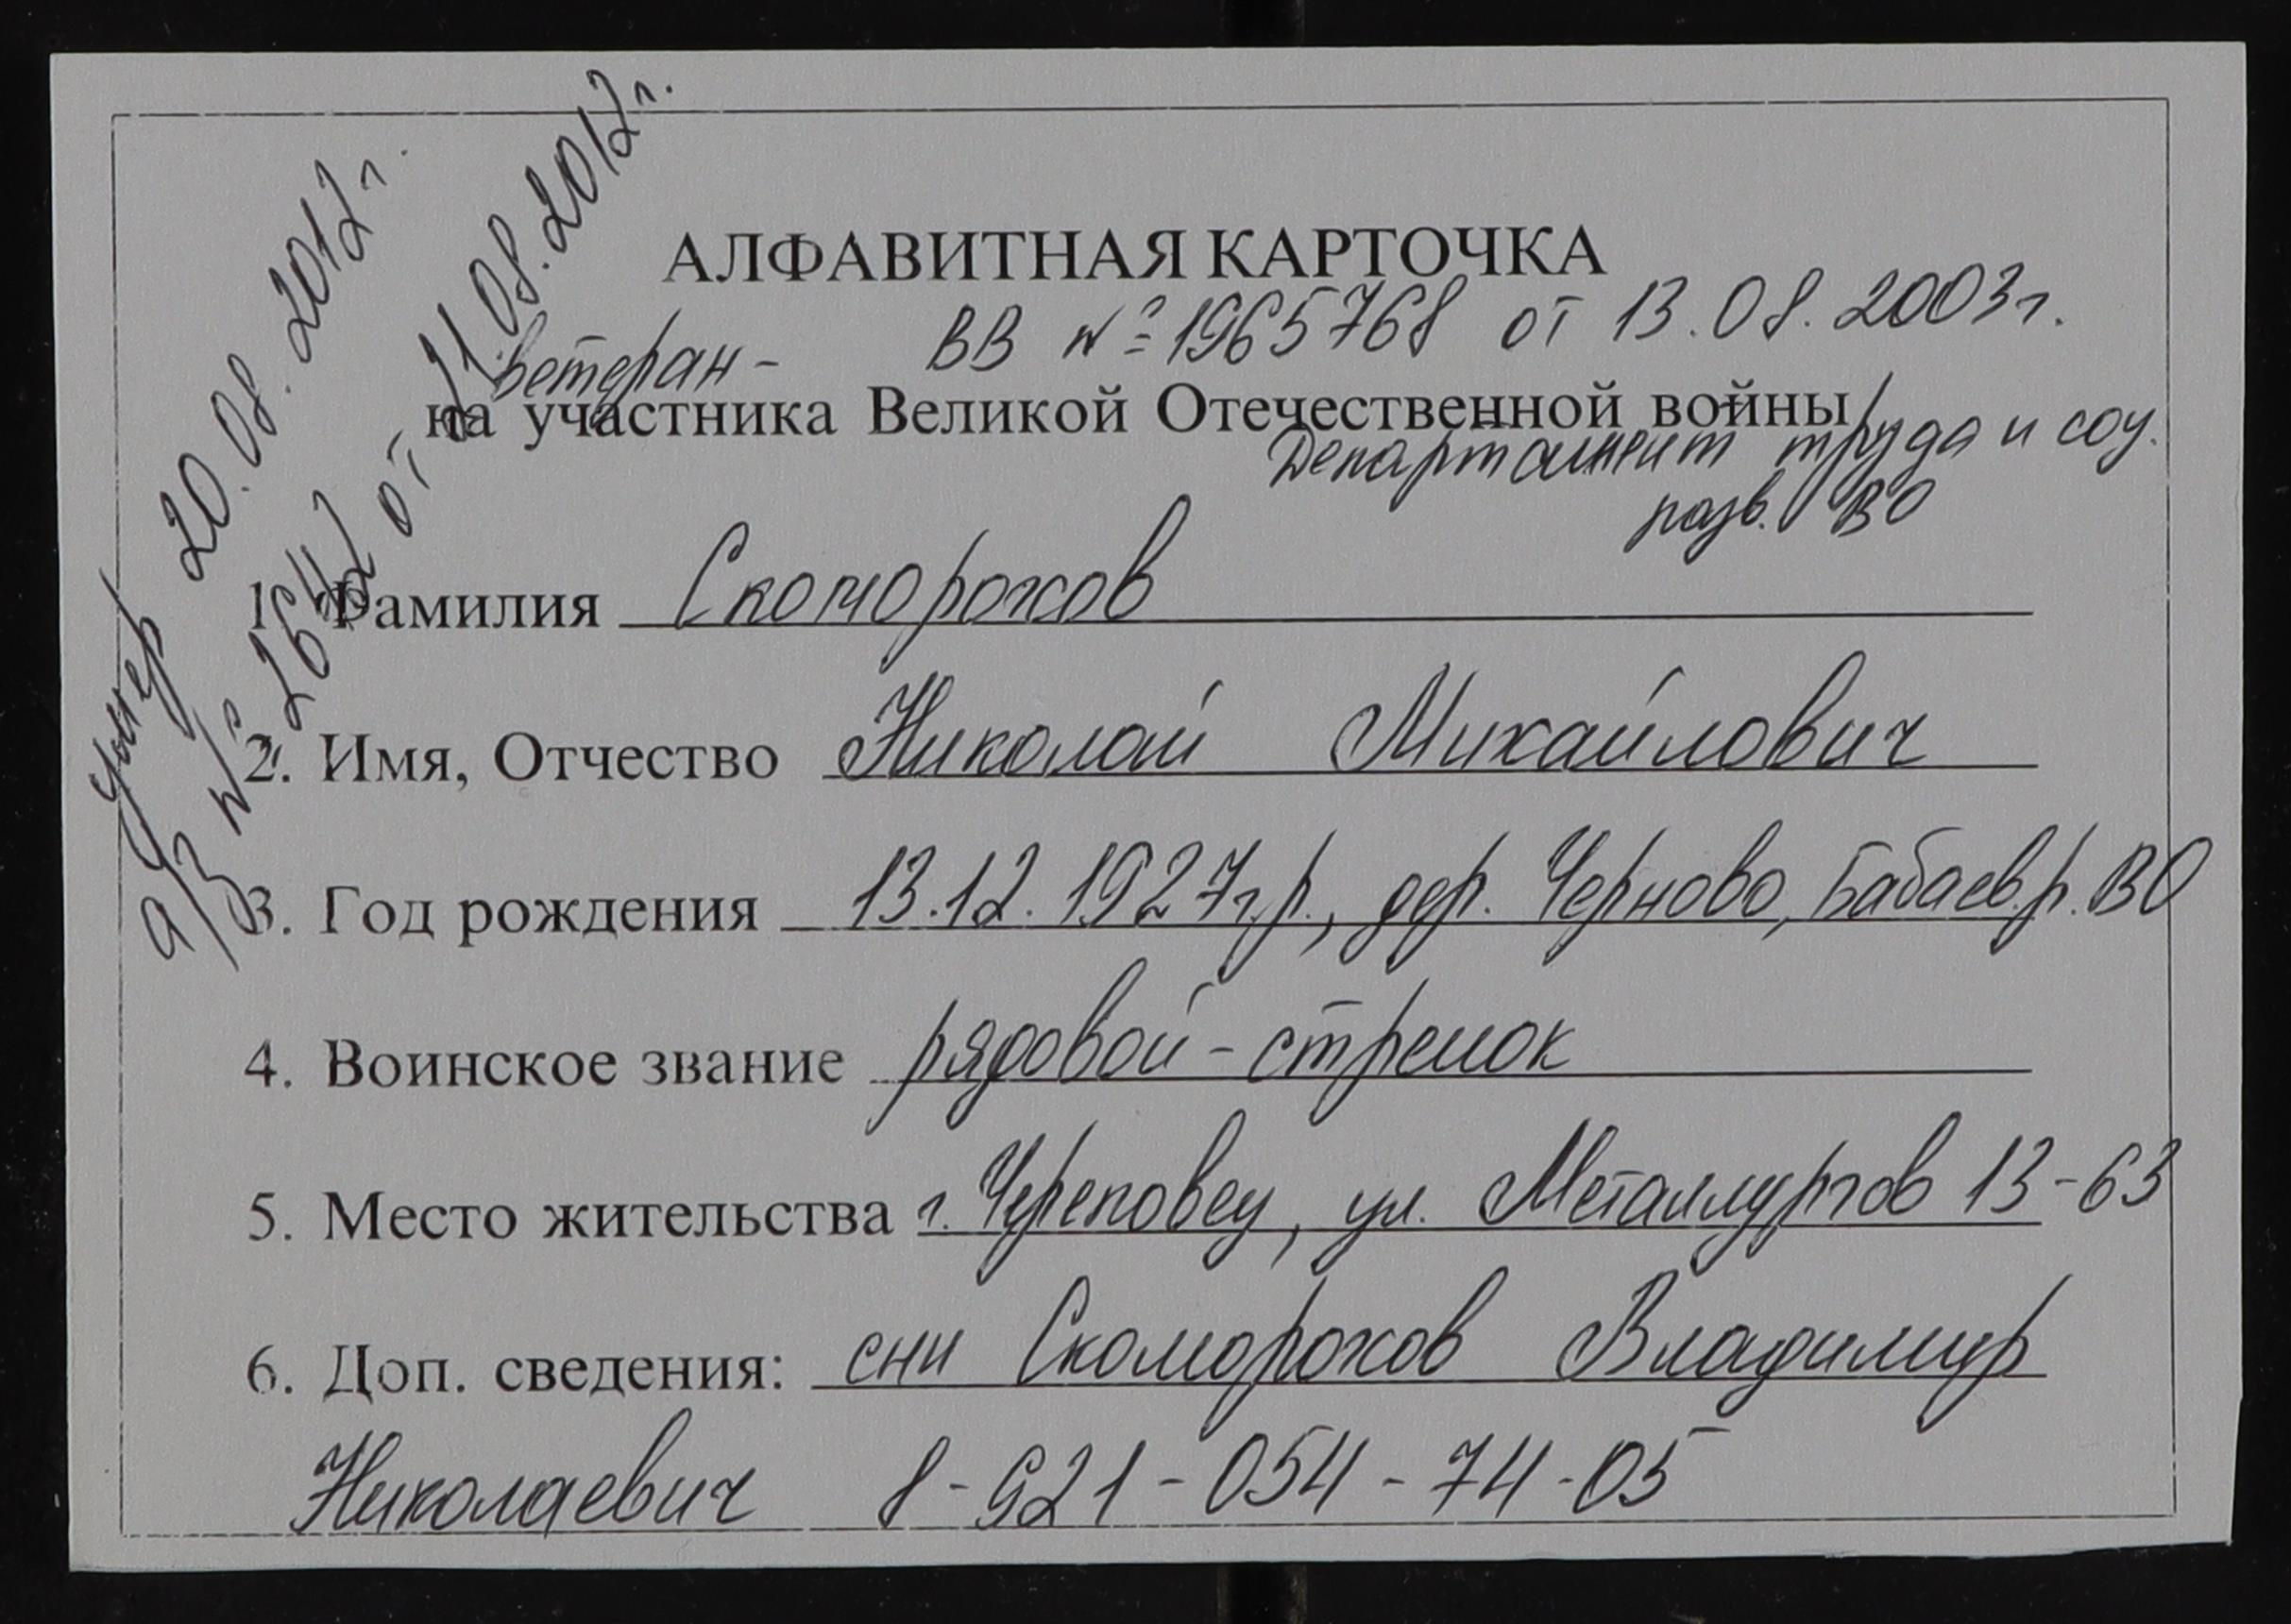 умер 20.08.2012г.
а/з № 2642 от 21.08.2012г.
АЛФАВИТНАЯ КАРТОЧКА
ветеран - ВВ № 1965768 от 13.08.2003г.
на участника Великой Отечественной войны
Департамент труда и соц.
разв. ВО
1. Фамилия Скоморохов
2. Имя, Отчество Николай Михайлович
3. Год рождения 13.12.1927г.р., дер. Черново, Бабаев.р. ВО
4. Воинское звание рядовой - стрелок
5. Место жительства г. Череповец, ул. Металлургов 13-63
6. Доп. сведения: сын Скоморохов Владимир
Николаевич 8-921-054-74-05